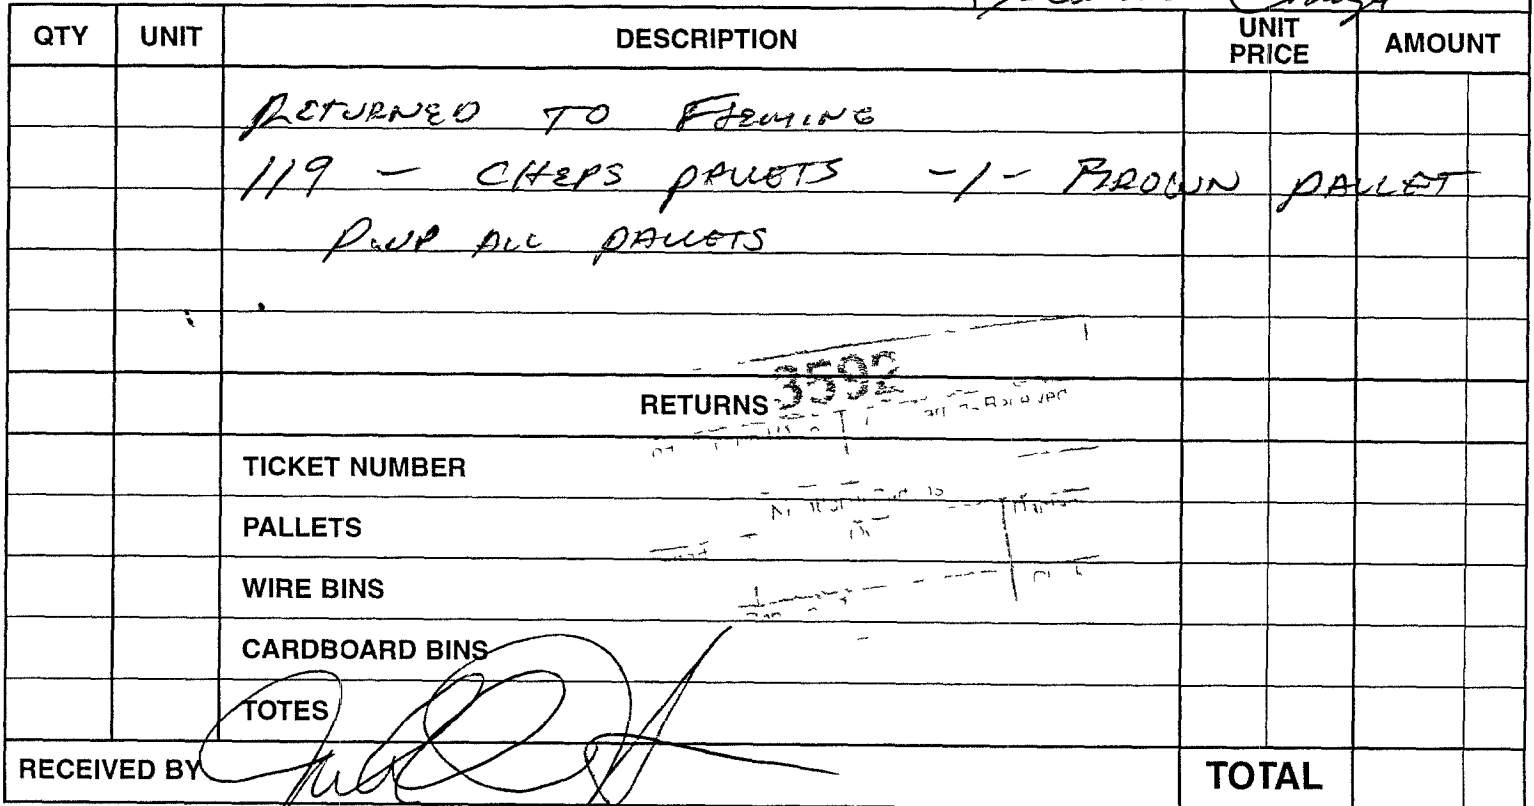 QTY UNIT DESCRIPTION UNIT PRICE AMOUNT
RETURNED TO FLEMING
119 - CHEPS PALLETS -1- BROWN PALLET
ALL PALLETS
3592
RETURNS
TICKET NUMBER
PALLETS
WIRE BINS
CARDBOARD BINS
TOTES
RECEIVED BY TOTAL